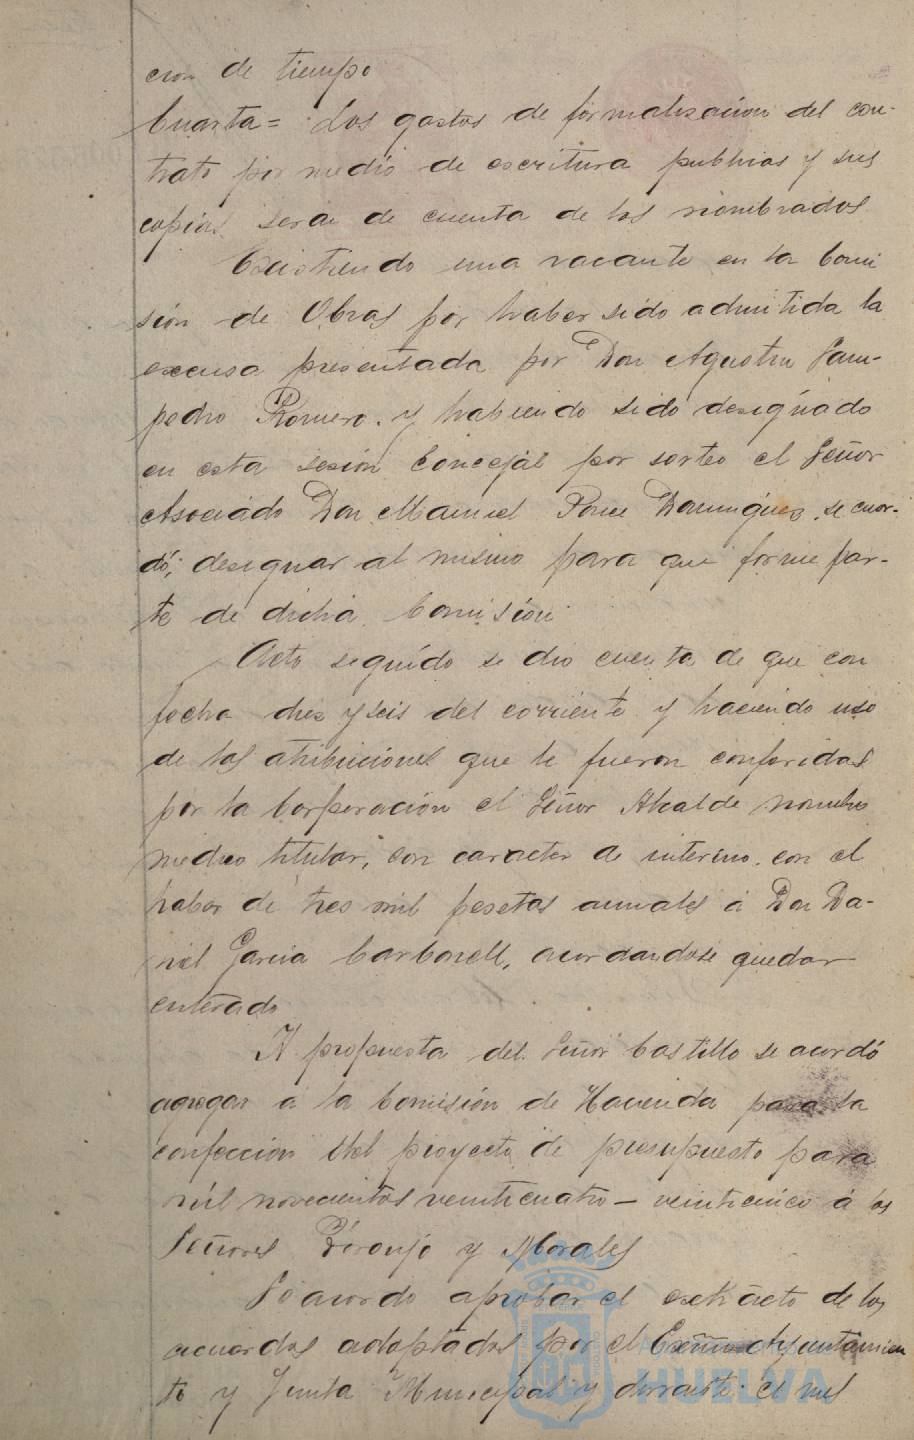 cion de tiempo
Cuarta= Los gastos de formalizacion del con-
trato por medio de escritura publicas y sus
copias sera de cuenta de los nombrados
Existiendo una vacante en la Comi
sión de Obras por haber sido admitida la
excusa presentada por Don Agustin Sam-
pedro Romero. y habiendo sido designado
en esta sesión Concejal por sorteo el Señor
Asociado Don Manuel Ponce Dominguez, se acor-
dó; designar al mismo para que forme par-
te de dicha Comisión
Acto seguido se dio cuenta de que con
fecha diez y seis del corriente y haciendo uso
de las atribuciones que le fueron conferidas
por la Corporación el Señor Alcalde nombro
medico titular, con caracter de interino, con el
haber de tres mil pesetas anuales á Don Da-
niel Garcia Carbonell, acordandose quedar
enterado
A propuesta del Señor Castillo se acordó
agregar a la Comisión de Hacienda para la
confeccion del proyecto de presupuesto para
mil novecientos veinticuatro - veinticinco á los
Señores y Morales
Se acordo aprobar el extracto de los
acuerdos adoptados por el Excmo Ayuntamien
to y Junta Municipal y durante el mes
HUELVA